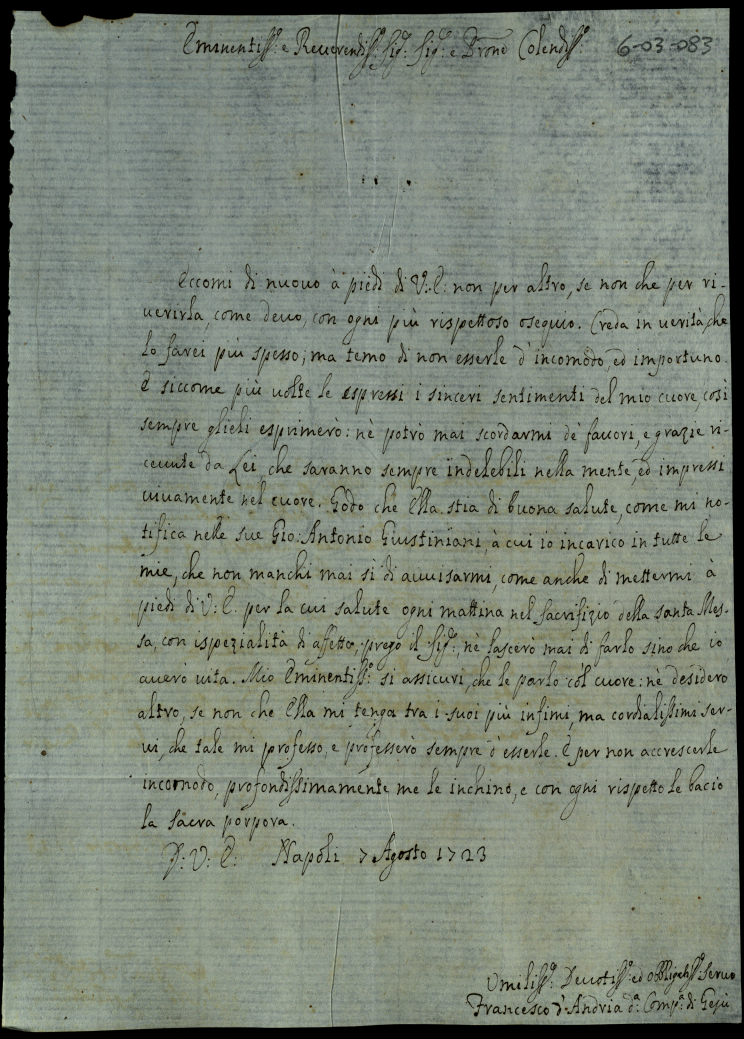 Eminentiss.º e Reuerendiss.º Sig.r Sig.r e Prone Colendiss.º 6-03-083
Eccomi di nuouo à piedi di V: E: non per altro, se non che per ri-
uerirla, come deuo, con ogni più rispettoso osequio. Creda in uerità, che
lo farei più spesso; ma temo di non esserle d'incomodo, ed importuno.
E siccome più uolte le espressi i sinceri sentimenti del mio cuore, così
sempre glieli esprimerò: nè potrò mai scordarmi de' fauori, e grazie ri-
ceuute da Lei che saranno sempre indelebili nella mente, ed impressi
uiuamente nel cuore. Godo che Ella stia di buona salute, come mi no-
tifica nelle sue Gio: Antonio Giustiniani, à cui io incarico in tutte le
mie, che non manchi mai sì di auuisarmi, come anche di mettermi à
piedi di V: E. per la cui salute ogni mattina nel sacrifizio della santa Mes-
sa, con ispezialità di affetto, prego il Sig.r, nè lascerò mai di farlo sino che io
auerò uita. Mio Eminentiss.º si assicuri, che le parlo col cuore: nè desidero
altro, se non che Ella mi tenga tra i suoi più infimi, ma cordialissimi ser-
ui, che tale mi professo, e professerò sempre d'esserle. E per non accrescerle
incomodo, profondissimamente me le inchino, e con ogni rispetto le bacio
la sacra porpora.
D: V: E: Napoli 7 Agosto 1723
Umiliss.º Deuotiss.º ed obbligatiss.º seruo
Francesco d'Andria d.a Comp.a di Gesù